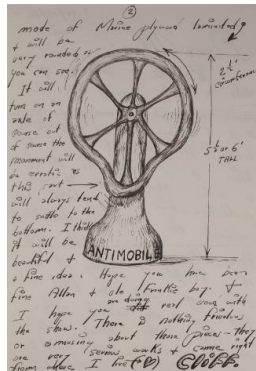 ②
mode of Marine plywood laminated
& will be
very rounded as
you can see.
It will
turn on an
axle of
course but
of course the
movement will
be erratic as
this part →
will always tend
to settle to the
bottom. I think
it will be
beautiful &
a fine idea. Hope you have been
fine Allan & old Frankie boy. &
I hope you are doing real work with
the show. There is nothing frivolous
or amusing about these pieces - they
are very serious works & come right
from where I live
CLOFF.
ANTIMOBILE
5½' or 6'
TALL